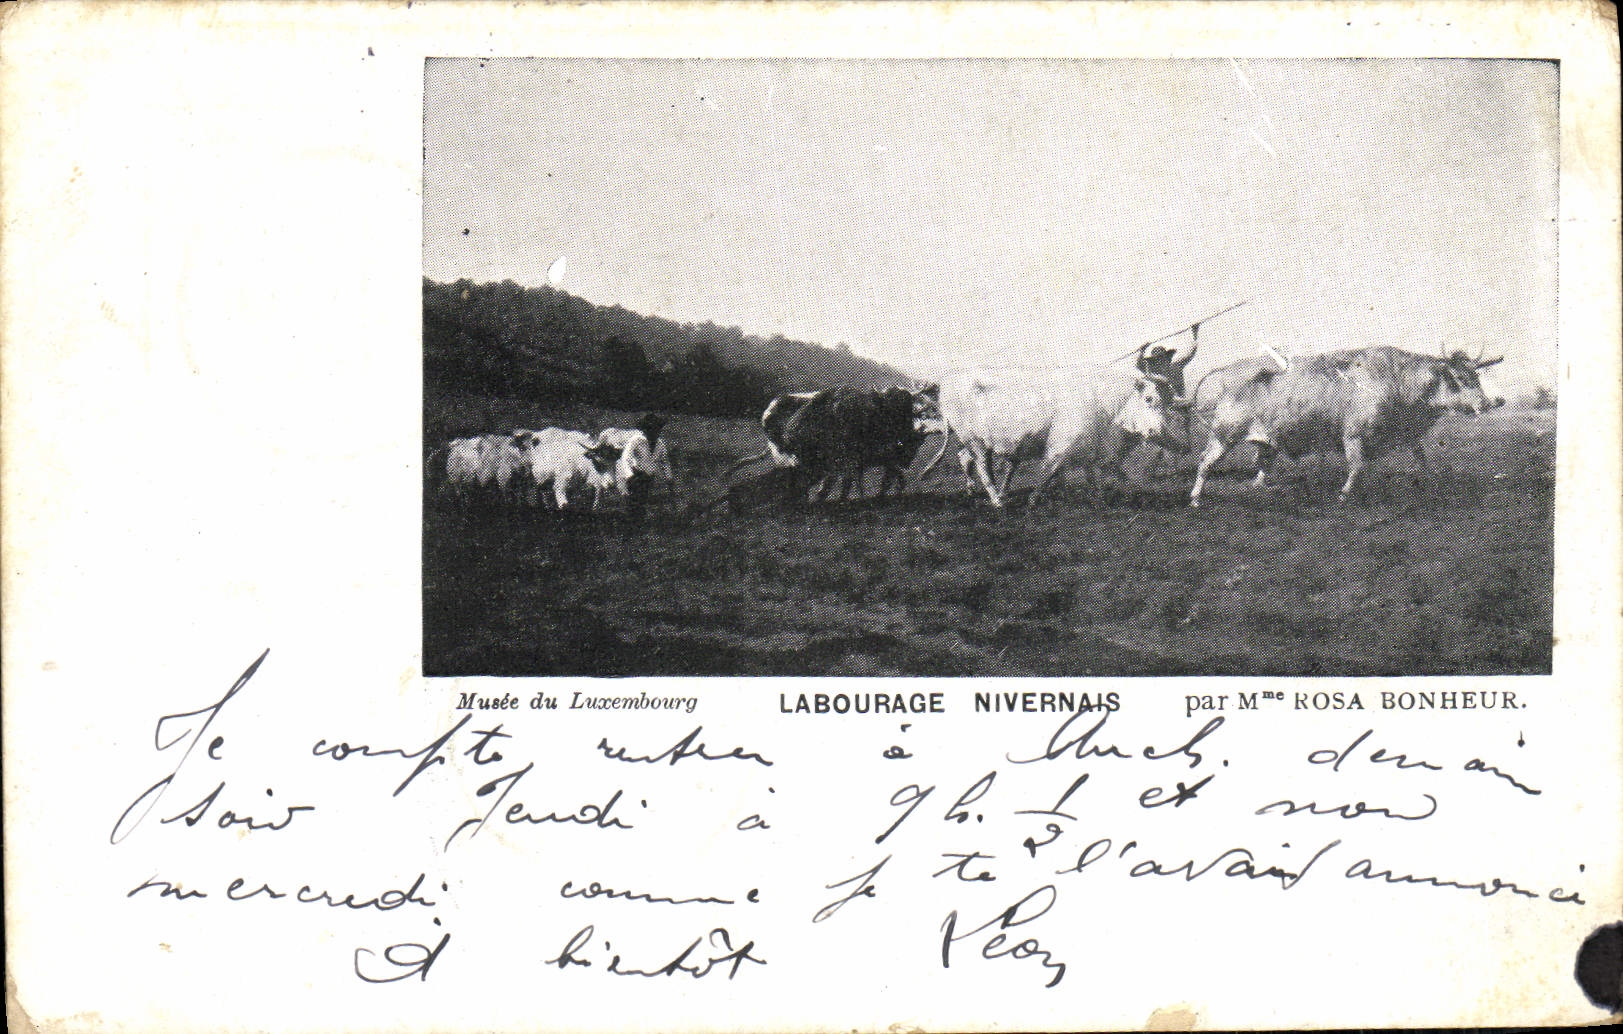 Musée du Luxembourg LABOURAGE NIVERNAIS par Mme ROSA BONHEUR.
Je compte rentrer à Auch. demain
soir Jeudi à 9 h. 1/2 et non
mercredi comme je te l'avais annoncé
A bientôt Léon